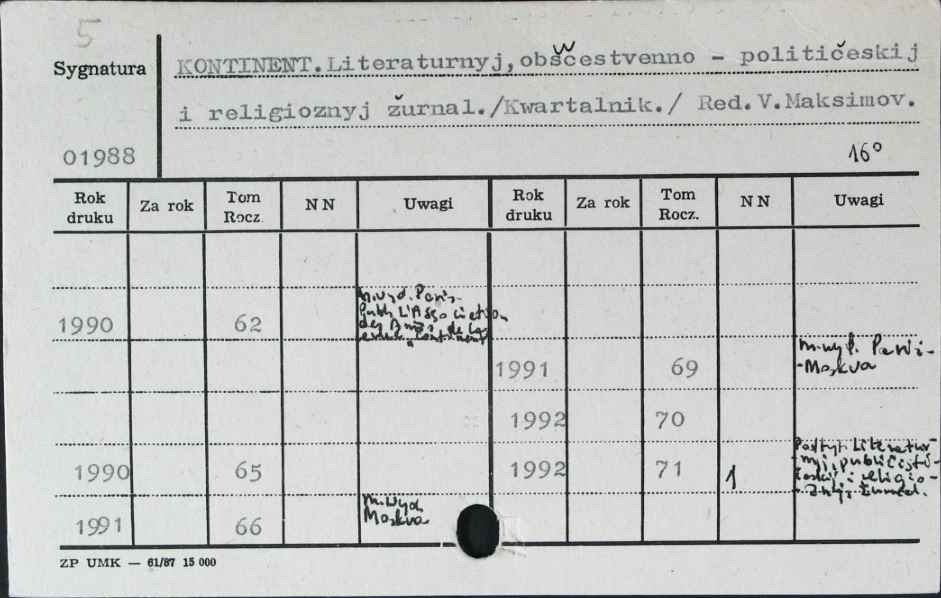 5
Sygnatura
KONTINENT.Literaturnyj,obščestvenno - političeskij
i religioznyj žurnal./Kwartalnik./ Red.V.Maksimov.
01988
16°
Rok druku Za rok Tom Rocz. NN Uwagi Rok druku Za rok Tom Rocz. NN Uwagi
m.wyd. Paris-
Publ. L'Association
des Amis de la
revue "Continent"
1990 62
1991 69
-Moskva
1992 70
1990 65
1992 71 1
Podtyt. Literatur-
nyj, publicisti-
českij i religio-
znyj žurnal.
m.wyd.
Moskva
1991 66
ZP UMK — 61/87 15 000